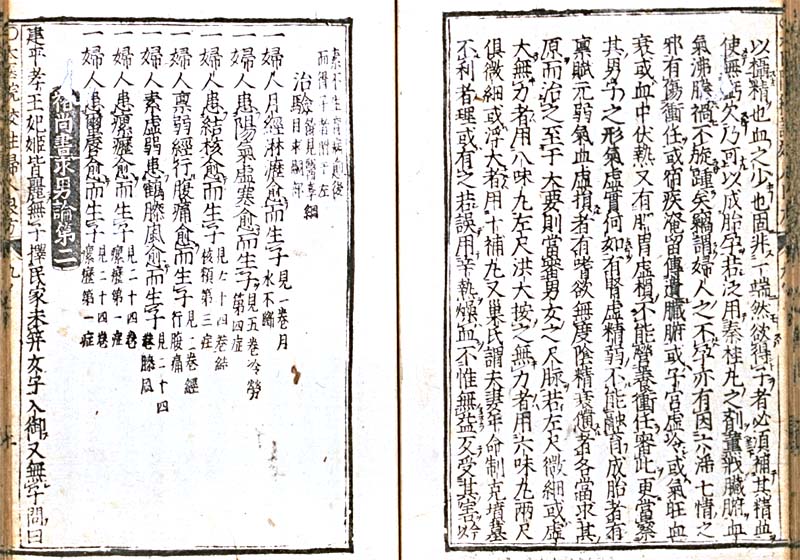 以攝精也血之少也固非一端然欲得子者必須補其精血
使無虧欠乃可以成胎孕若泛用秦桂九之剤薰戕臟腑血
氣沸騰禍不旋踵矣竊謂婦人之不孕亦有因六淫七情之
邪有傷衝任或宿疾淹留傳遺臟腑或子宮虛冷或氣旺血
衰或血中伏熱又有脾胃虛損不能營養衝任審此更當察
其男子之形氣虛實何如有腎虛精弱不能融育成胎者有
禀賦元弱氣血虛損者有嗜欲無度陰精衰憊者各當求其
原而治之至于大要則當審男女之尺脉若左尺微細或虛
大無力者用八味九左尺洪大按之無力者用六味九兩尺
俱微細或浮大者用十補九又巢氏謂夫妻年命制克墳墓
不利者理或有之若誤用辛熱燥血不惟無益反受其害
治驗
一婦人月經淋瀝愈而生子 見一卷月水不斷
一婦人患陽氣虛寒愈而生子 見五卷冷勞第四症
一婦人患結核愈而生子 見七十四卷結核類第三症
一婦人禀弱經行腹痛愈而生子 見二卷經行腹痛
一婦人素虛弱患鶴膝風愈而生子 見二十四卷膝風
一婦人患瘰癧愈而生子 見二十四卷瘰癧第一症
一婦人患 愈而生子 見二十四卷瘰癧第一症
褚尚書求男論第二
建平孝王妃姬皆麗無子擇民家未笄女子入御又無子問曰